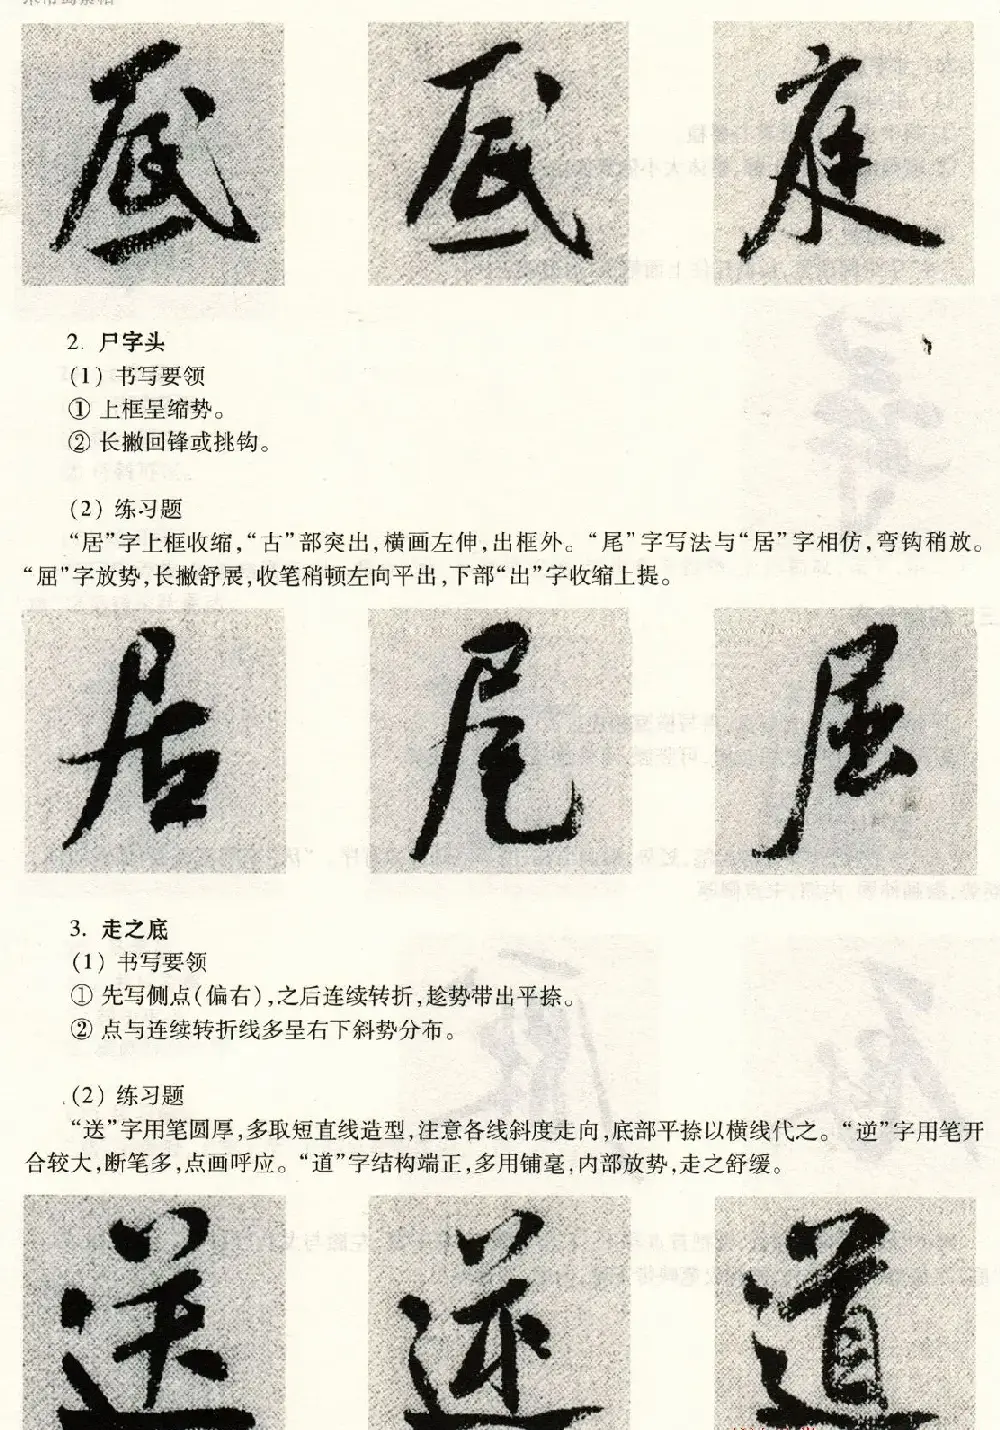 底 底 庭
2. 尸字头
(1) 书写要领
① 上框呈缩势。
② 长撇回锋或挑钩。
(2) 练习题
“居”字上框收缩,“古”部突出,横画左伸,出框外。“尾”字写法与“居”字相仿,弯钩稍放。
“屈”字放势,长撇舒展,收笔稍顿左向平出,下部“出”字收缩上提。
居 尾 屈
3. 走之底
(1) 书写要领
① 先写侧点(偏右),之后连续转折,趁势带出平捺。
② 点与连续转折线多呈右下斜势分布。
(2) 练习题
“送”字用笔圆厚,多取短直线造型,注意各线斜度走向,底部平捺以横线代之。“逆”字用笔开
合较大,断笔多,点画呼应。“道”字结构端正,多用铺毫,内部放势,走之舒缓。
送 逆 道